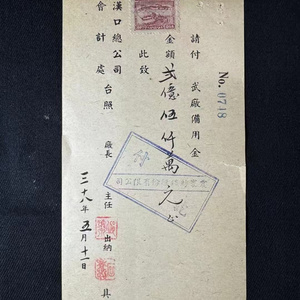 No. 0748
請付 武廠備用金
金額 弍億伍仟萬元正
此致
漢口總公司
會計處 台照
廠長 主任 出納 具
三十八年五月十一日
付